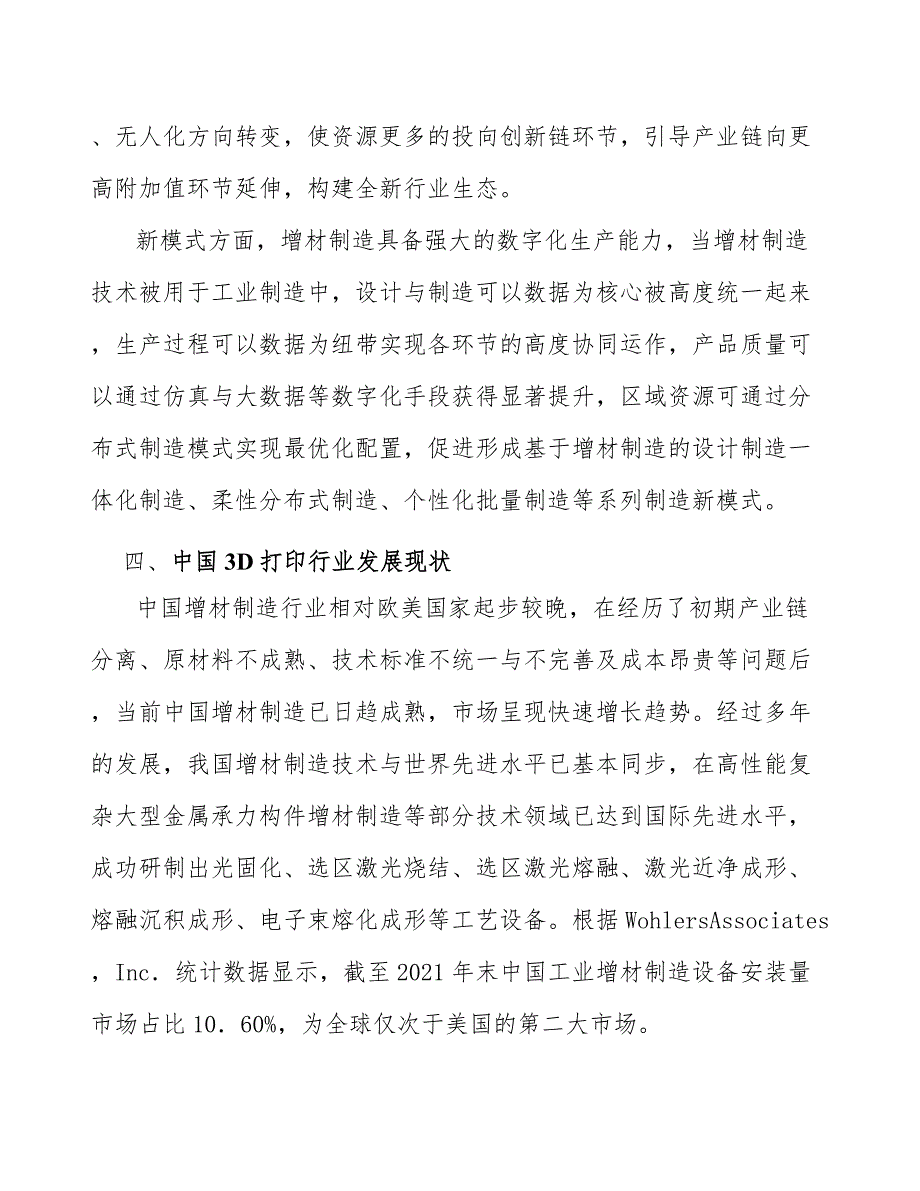 、无人化方向转变，使资源更多的投向创新链环节，引导产业链向更
高附加值环节延伸，构建全新行业生态。
新模式方面，增材制造具备强大的数字化生产能力，当增材制造
技术被用于工业制造中，设计与制造可以数据为核心被高度统一起来
，生产过程可以数据为纽带实现各环节的高度协同运作，产品质量可
以通过仿真与大数据等数字化手段获得显著提升，区域资源可通过分
布式制造模式实现最优化配置，促进形成基于增材制造的设计制造一
体化制造、柔性分布式制造、个性化批量制造等系列制造新模式。
四、中国 3D 打印行业发展现状
中国增材制造行业相对欧美国家起步较晚，在经历了初期产业链
分离、原材料不成熟、技术标准不统一与不完善及成本昂贵等问题后
，当前中国增材制造已日趋成熟，市场呈现快速增长趋势。经过多年
的发展，我国增材制造技术与世界先进水平已基本同步，在高性能复
杂大型金属承力构件增材制造等部分技术领域已达到国际先进水平，
成功研制出光固化、选区激光烧结、选区激光熔融、激光近净成形、
熔融沉积成形、电子束熔化成形等工艺设备。根据 WohlersAssociates
，Inc．统计数据显示，截至 2021 年末中国工业增材制造设备安装量
市场占比 10．60%，为全球仅次于美国的第二大市场。